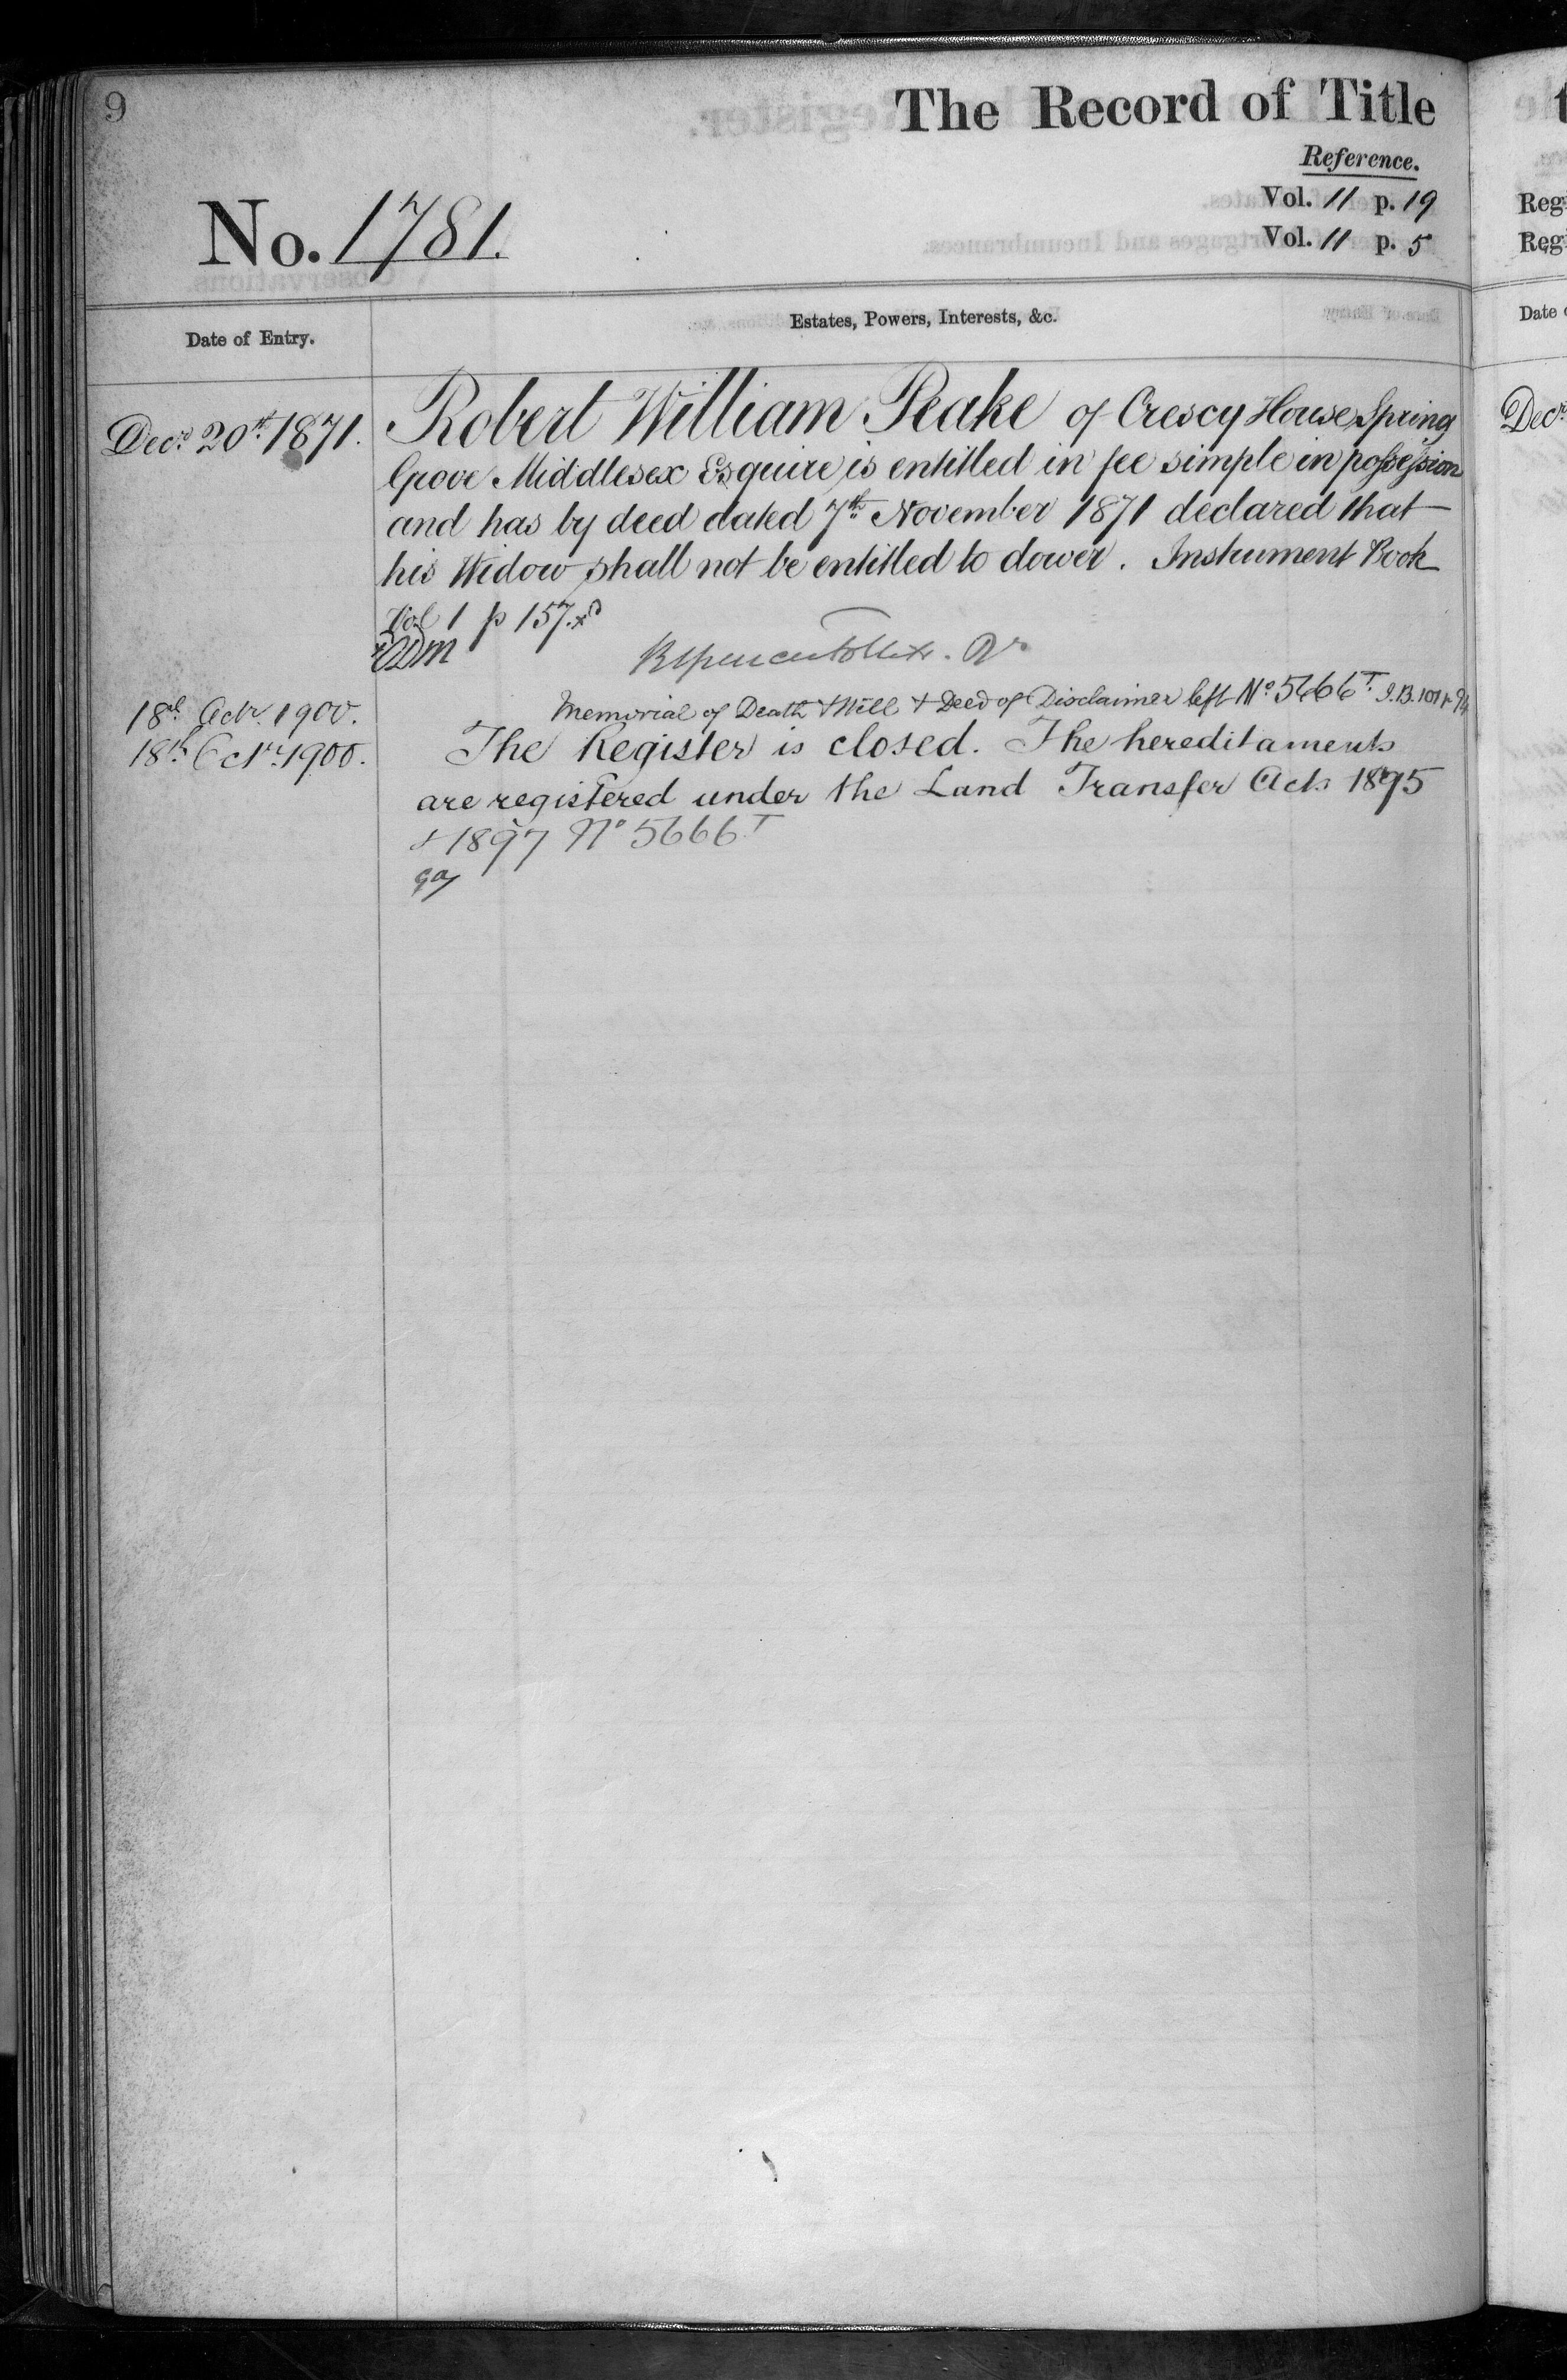 9
The Record of Title
Reference.
No. 1781.
Vol. 11 p. 19
Vol. 11 p. 5
Date of Entry.
Estates, Powers, Interests, &c.
Decr. 20th 1871.
Robert William Peake of Crescy House Spring
Grove Middlesex Esquire is entitled in fee simple in possession
and has by deed dated 7th November 1871 declared that
his Widow shall not be entitled to dower. Instrument Book
Vol 1 p 157.
18th Octr. 1900.
Memorial of Death & Will & Deed of Disclaimer left No 5666T I.B. 101
18th Octr. 1900.
The Register is closed. The hereditaments
are registered under the Land Transfer Acts 1895
& 1897 No 5666T
Reg
Reg
Date
Decr